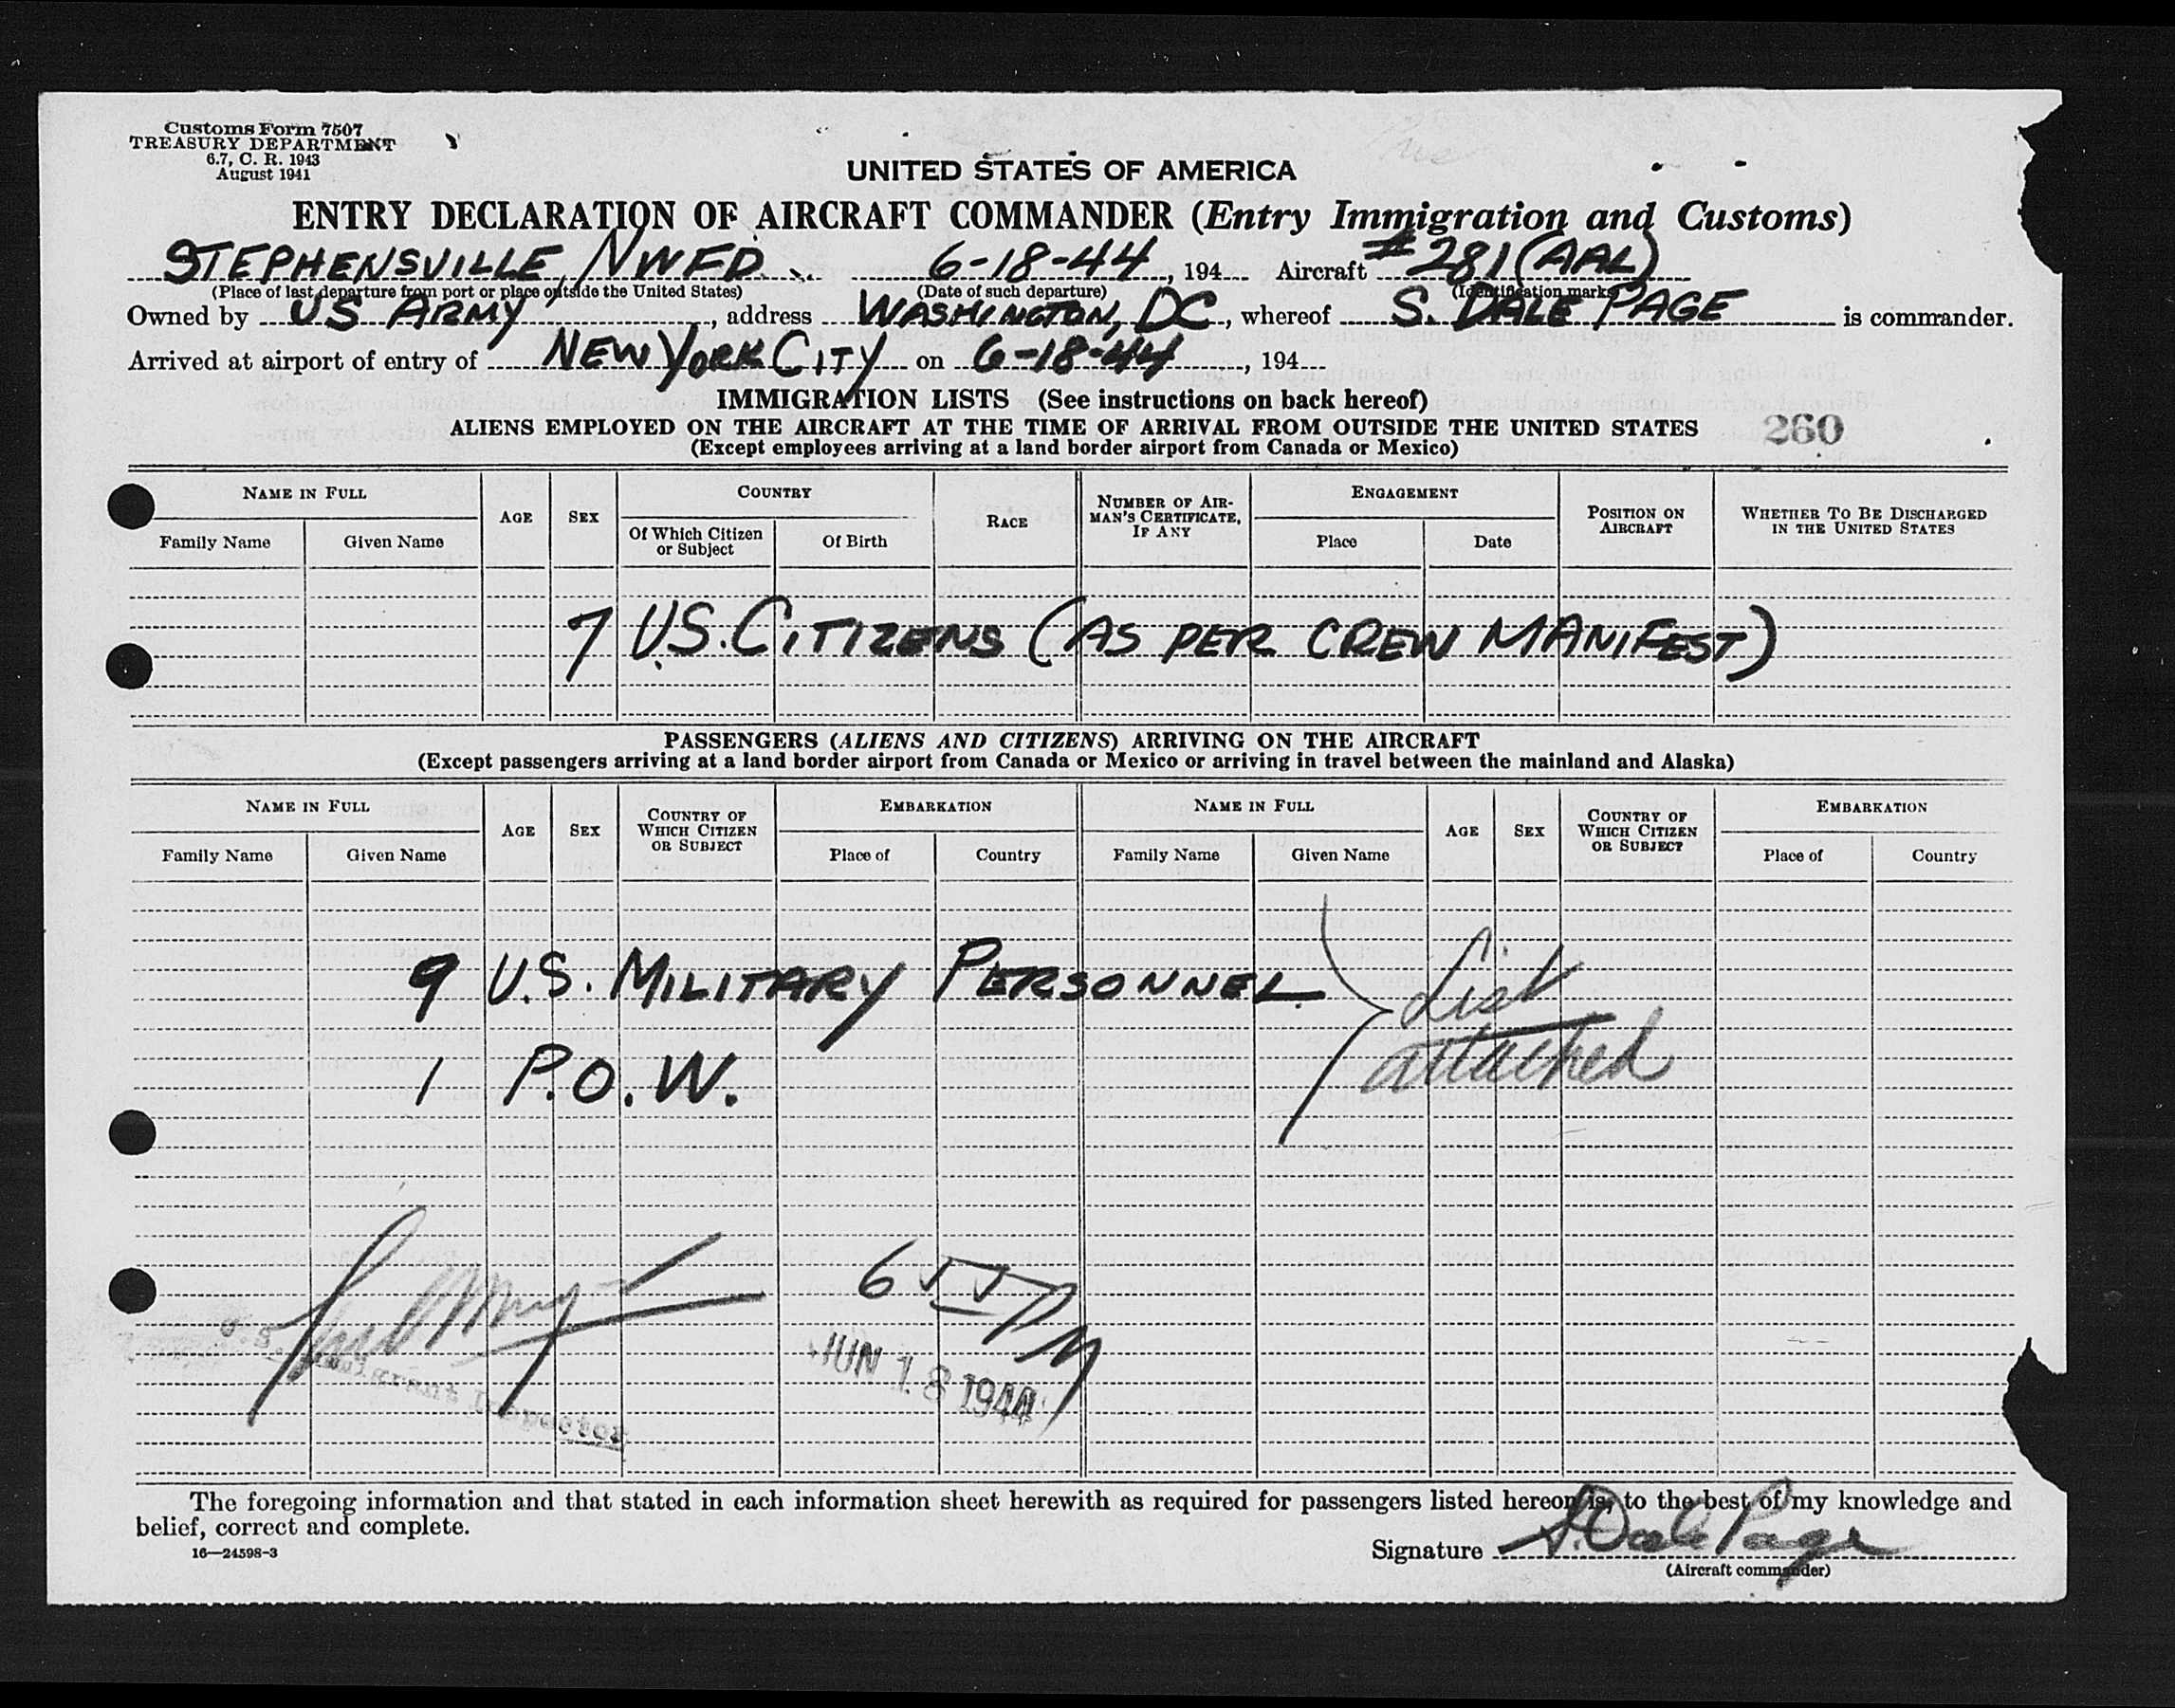 Customs Form 7507
TREASURY DEPARTMENT
6.7, C. R. 1943
August 1941
UNITED STATES OF AMERICA
ENTRY DECLARATION OF AIRCRAFT COMMANDER (Entry Immigration and Customs)
STEPHENSVILLE, NWFD. 6-18-44, 194 Aircraft #281 (AAL)
(Place of last departure from port or place outside the United States) (Date of such departure) (Identification marks)
Owned by US ARMY, address WASHINGTON, DC, whereof S. DALE PAGE is commander.
Arrived at airport of entry of NEW YORK CITY on 6-18-44, 194
IMMIGRATION LISTS (See instructions on back hereof)
ALIENS EMPLOYED ON THE AIRCRAFT AT THE TIME OF ARRIVAL FROM OUTSIDE THE UNITED STATES 260
(Except employees arriving at a land border airport from Canada or Mexico)
NAME IN FULL AGE SEX COUNTRY RACE NUMBER OF AIRMAN'S CERTIFICATE, IF ANY ENGAGEMENT POSITION ON AIRCRAFT WHETHER TO BE DISCHARGED IN THE UNITED STATES
Family Name Given Name Of Which Citizen or Subject Of Birth Place Date
7 U.S. CITIZENS (AS PER CREW MANIFEST)
PASSENGERS (ALIENS AND CITIZENS) ARRIVING ON THE AIRCRAFT
(Except passengers arriving at a land border airport from Canada or Mexico or arriving in travel between the mainland and Alaska)
NAME IN FULL AGE SEX COUNTRY OF WHICH CITIZEN OR SUBJECT EMBARKATION NAME IN FULL AGE SEX COUNTRY OF WHICH CITIZEN OR SUBJECT EMBARKATION
Family Name Given Name Place of Country Family Name Given Name Place of Country
9 U.S. MILITARY PERSONNEL List
1 P.O.W. attached
JUN 18 1944
Immigrant Inspector
The foregoing information and that stated in each information sheet herewith as required for passengers listed hereon is, to the best of my knowledge and
belief, correct and complete.
16—24598-3
Signature S. Dale Page
(Aircraft commander)